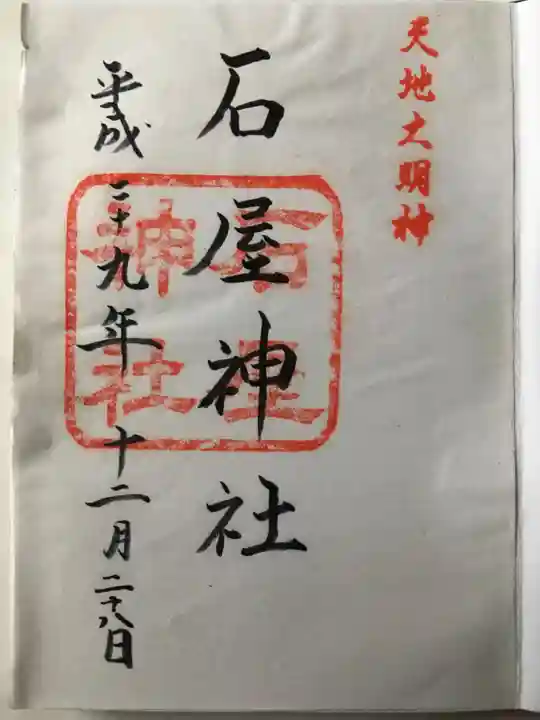 天地大明神
石屋神社
石屋
神社
平成二十九年十二月二十八日